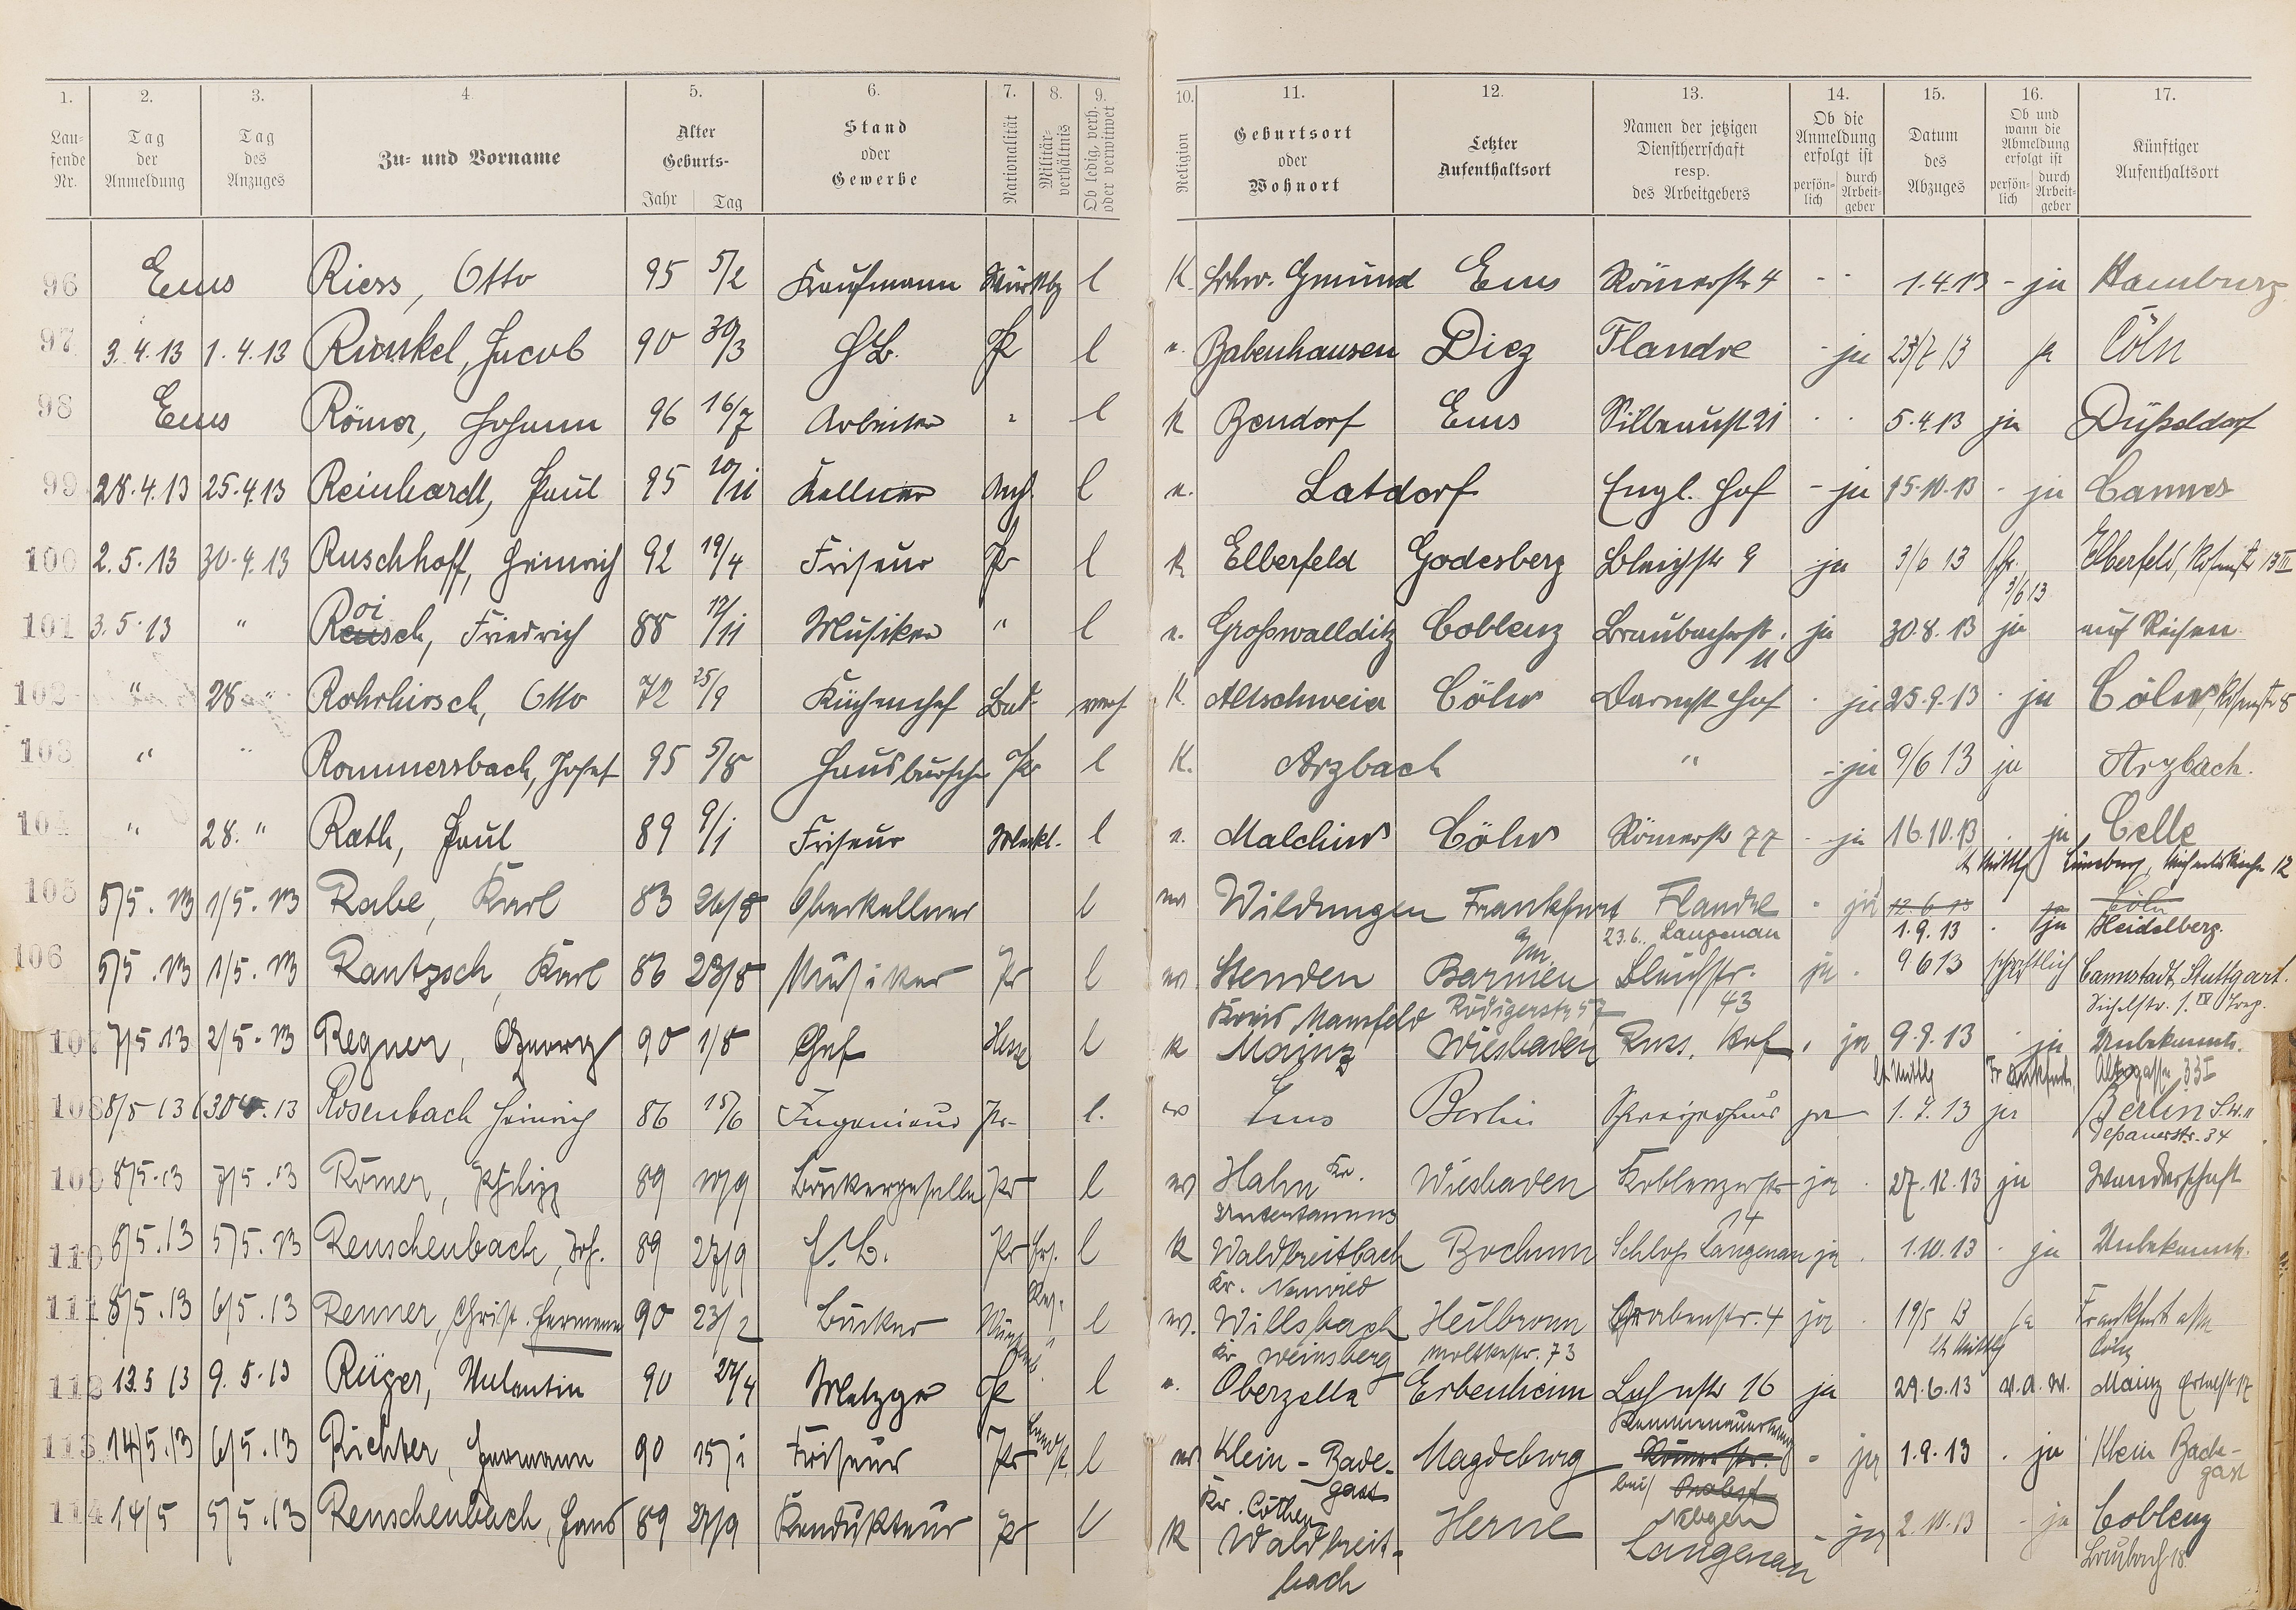 1. 2. 3. 4. 5. 6. 7. 8. 9. 10. 11. 12. 13. 14. 15. 16. 17.
Lau-
fende
Nr.
Tag
der
Anmeldung
Tag
des
Anzuges
Zu- und Vorname
Alter
Geburts-
Jahr Tag
Stand
oder
Gewerbe
Nationalität
Militär-
verhältnis
Ob ledig, verh.
oder verwitwet
Religion
Geburtsort
oder
Wohnort
Letzter
Aufenthaltsort
Namen der jetzigen
Dienstherrschaft
resp.
des Arbeitgebers
Ob die
Anmeldung
erfolgt ist
persön-
lich
durch
Arbeit-
geber
Datum
des
Abzuges
Ob und
wann die
Abmeldung
erfolgt ist
persön-
lich
durch
Arbeit-
geber
Künftiger
Aufenthaltsort
96 Ems Riess, Otto 95 5/2 Kaufmann l K. Gmünd Ems Römerstr 4 - - 1.4.13 - ja Hamburg
97 3.4.13 1.4.13 Runkel, Jacob 90 30/3 H.B. Pr l e. Babenhausen Diez Flandre - ja 23/7 13 ja Cöln
98 Ems Römer, Johann 96 16/7 Arbeiter " l K Bendorf Ems Silberaustr 21 . . 5.4.13 ja Düsseldorf
99 28.4.13 25.4.13 Reinhardt, Paul 95 10/11 Kellner Anh. l e. Latdorf Engl. Hof - ja 15.10.13 - ja Cannes
100 2.5.13 30.4.13 Ruschhoff, Heinrich 92 19/4 Friseur Pr l K Elberfeld Godesberg Bleichstr 9 ja 3/6 13 schr. Elberfeld, 13 II
3/6 13
oi
101 3.5.13 " Reusch, Friedrich 88 12/11 Musiker " l e. Großwallditz Coblenz Braubacherstr. ja 30.8.13 ja auf Reisen
11
102 " 28 " Rohrhirsch, Otto 72 25/9 Küchenchef Bad. verh K. Altschweier Cöln Darmst Hof - ja 25.9.13 . ja Cöln, 8
103 " " Rommersbach, Josef 95 5/8 Hausbursche Pr l K. Arzbach " - ja 9/6 13 ja Arzbach.
104 " 28. " Rath, Paul 89 9/1 Friseur Meckl. l e. Malchin Cöln Römerstr 77 - ja 16.10.13 . ja Celle
lt Mittlg Lüneburg, 12
105 5/5.13 1/5.13 Rabe, Karl 83 26/8 Oberkellner l ev Wildungen Frankfurt Flandre - ja 12.6.13 . ja Cöln
a/m 23.6. Langenau 1.9.13 . ja Heidelberg.
106 5/5.13 1/5.13 Rantzsch, Karl 86 23/8 Musiker Pr l ev. Stenden Barmen Bleichstr. ja . 9 6 13 schriftlich Cannstadt, Stuttgart.
Kreis Mansfeld Rüdigerstr 57 43
107 7/5.13 2/5.13 Regner, Georg 90 1/8 Chef Hesse l K Mainz Wiesbaden Russ. Hof . ja 9.9.13 . ja Unbekannt.
lt Mittlg 33 I
108 8/5 13 30.4.13 Rosenbach Heinrich 86 15/6 Ingenieur Pr. l. ev Ems Berlin ja 1.7.13 ja Berlin S.W. 11
Dessauerstr. 34
109 8/5.13 7/5.13 Römer, Philipp 89 10/9 Bäckergeselle Pr l ev Hahn Kr. Wiesbaden Koblenzerstr ja . 27.12.13 ja Wanderschaft
Untertaunus 14
110 6/5.13 5/5.13 Reuschenbach, Joh. 89 27/9 H.B. Pr l K Waldbreitbach Bochum Schloß Langenau ja . 1.10.13 . ja Unbekannt.
Kr. Neuwied
111 8/5.13 6/5.13 Renner, Christ. Hermann 90 23/2 Bäcker l ev. Willsbach Heilbronn Grabenstr. 4 ja . 19/5 13 ja Frankfurt a/m
Kr Weinsberg Moltkestr. 73 lt Mittlg Cöln
112 13.5 13 9.5.13 Rüger, Valentin 90 27/4 Metzger Pr l e. Oberzella Erbenheim Lahnstr 16 ja 29.6.13 v.A.W. Mainz 17
113 14/5.13 6/5.13 Richter, Hermann 90 15/1 Friseur Pr l ev Klein-Bade- Magdeburg Römerstr. - ja 1.9.13 . ja Klein Bade-
gast bei Probst gast
Kr. Cöthen
114 14/5 5/5.13 Reuschenbach, Hans 89 27/9 Kondukteur Pr l K Waldbreit- Herne Langenau - ja 2.10.13 - ja Coblenz
bach Laubach 18.